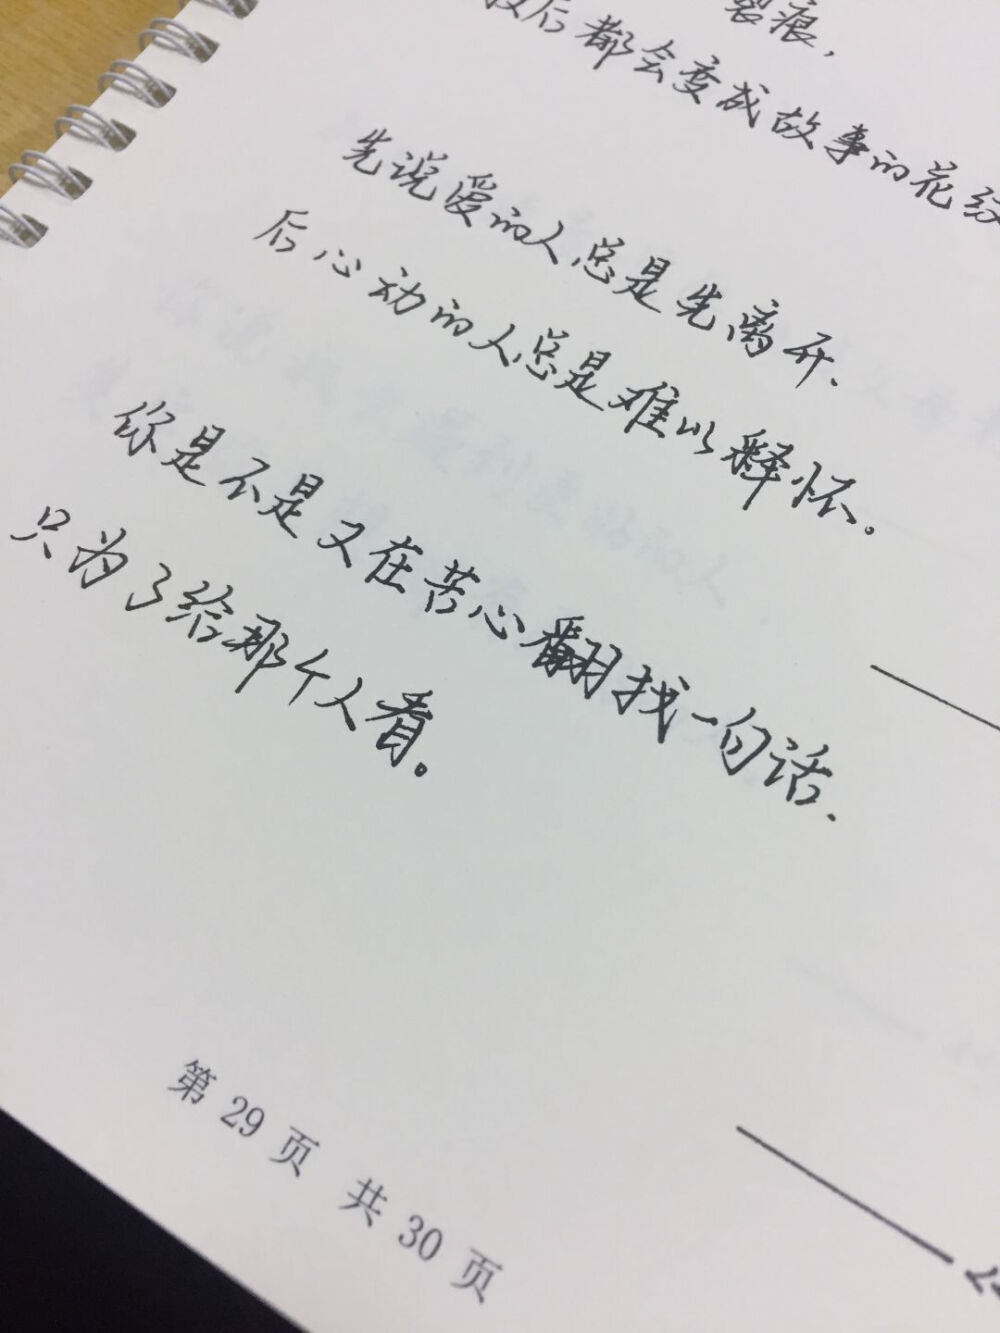 裂痕，
最后都会变成故事的花纹
先说爱的人总是先离开、
后心动的人总是难以释怀。
你是不是又在苦心翻找一句话、
只为了给那个人看。
第 29 页 共 30 页